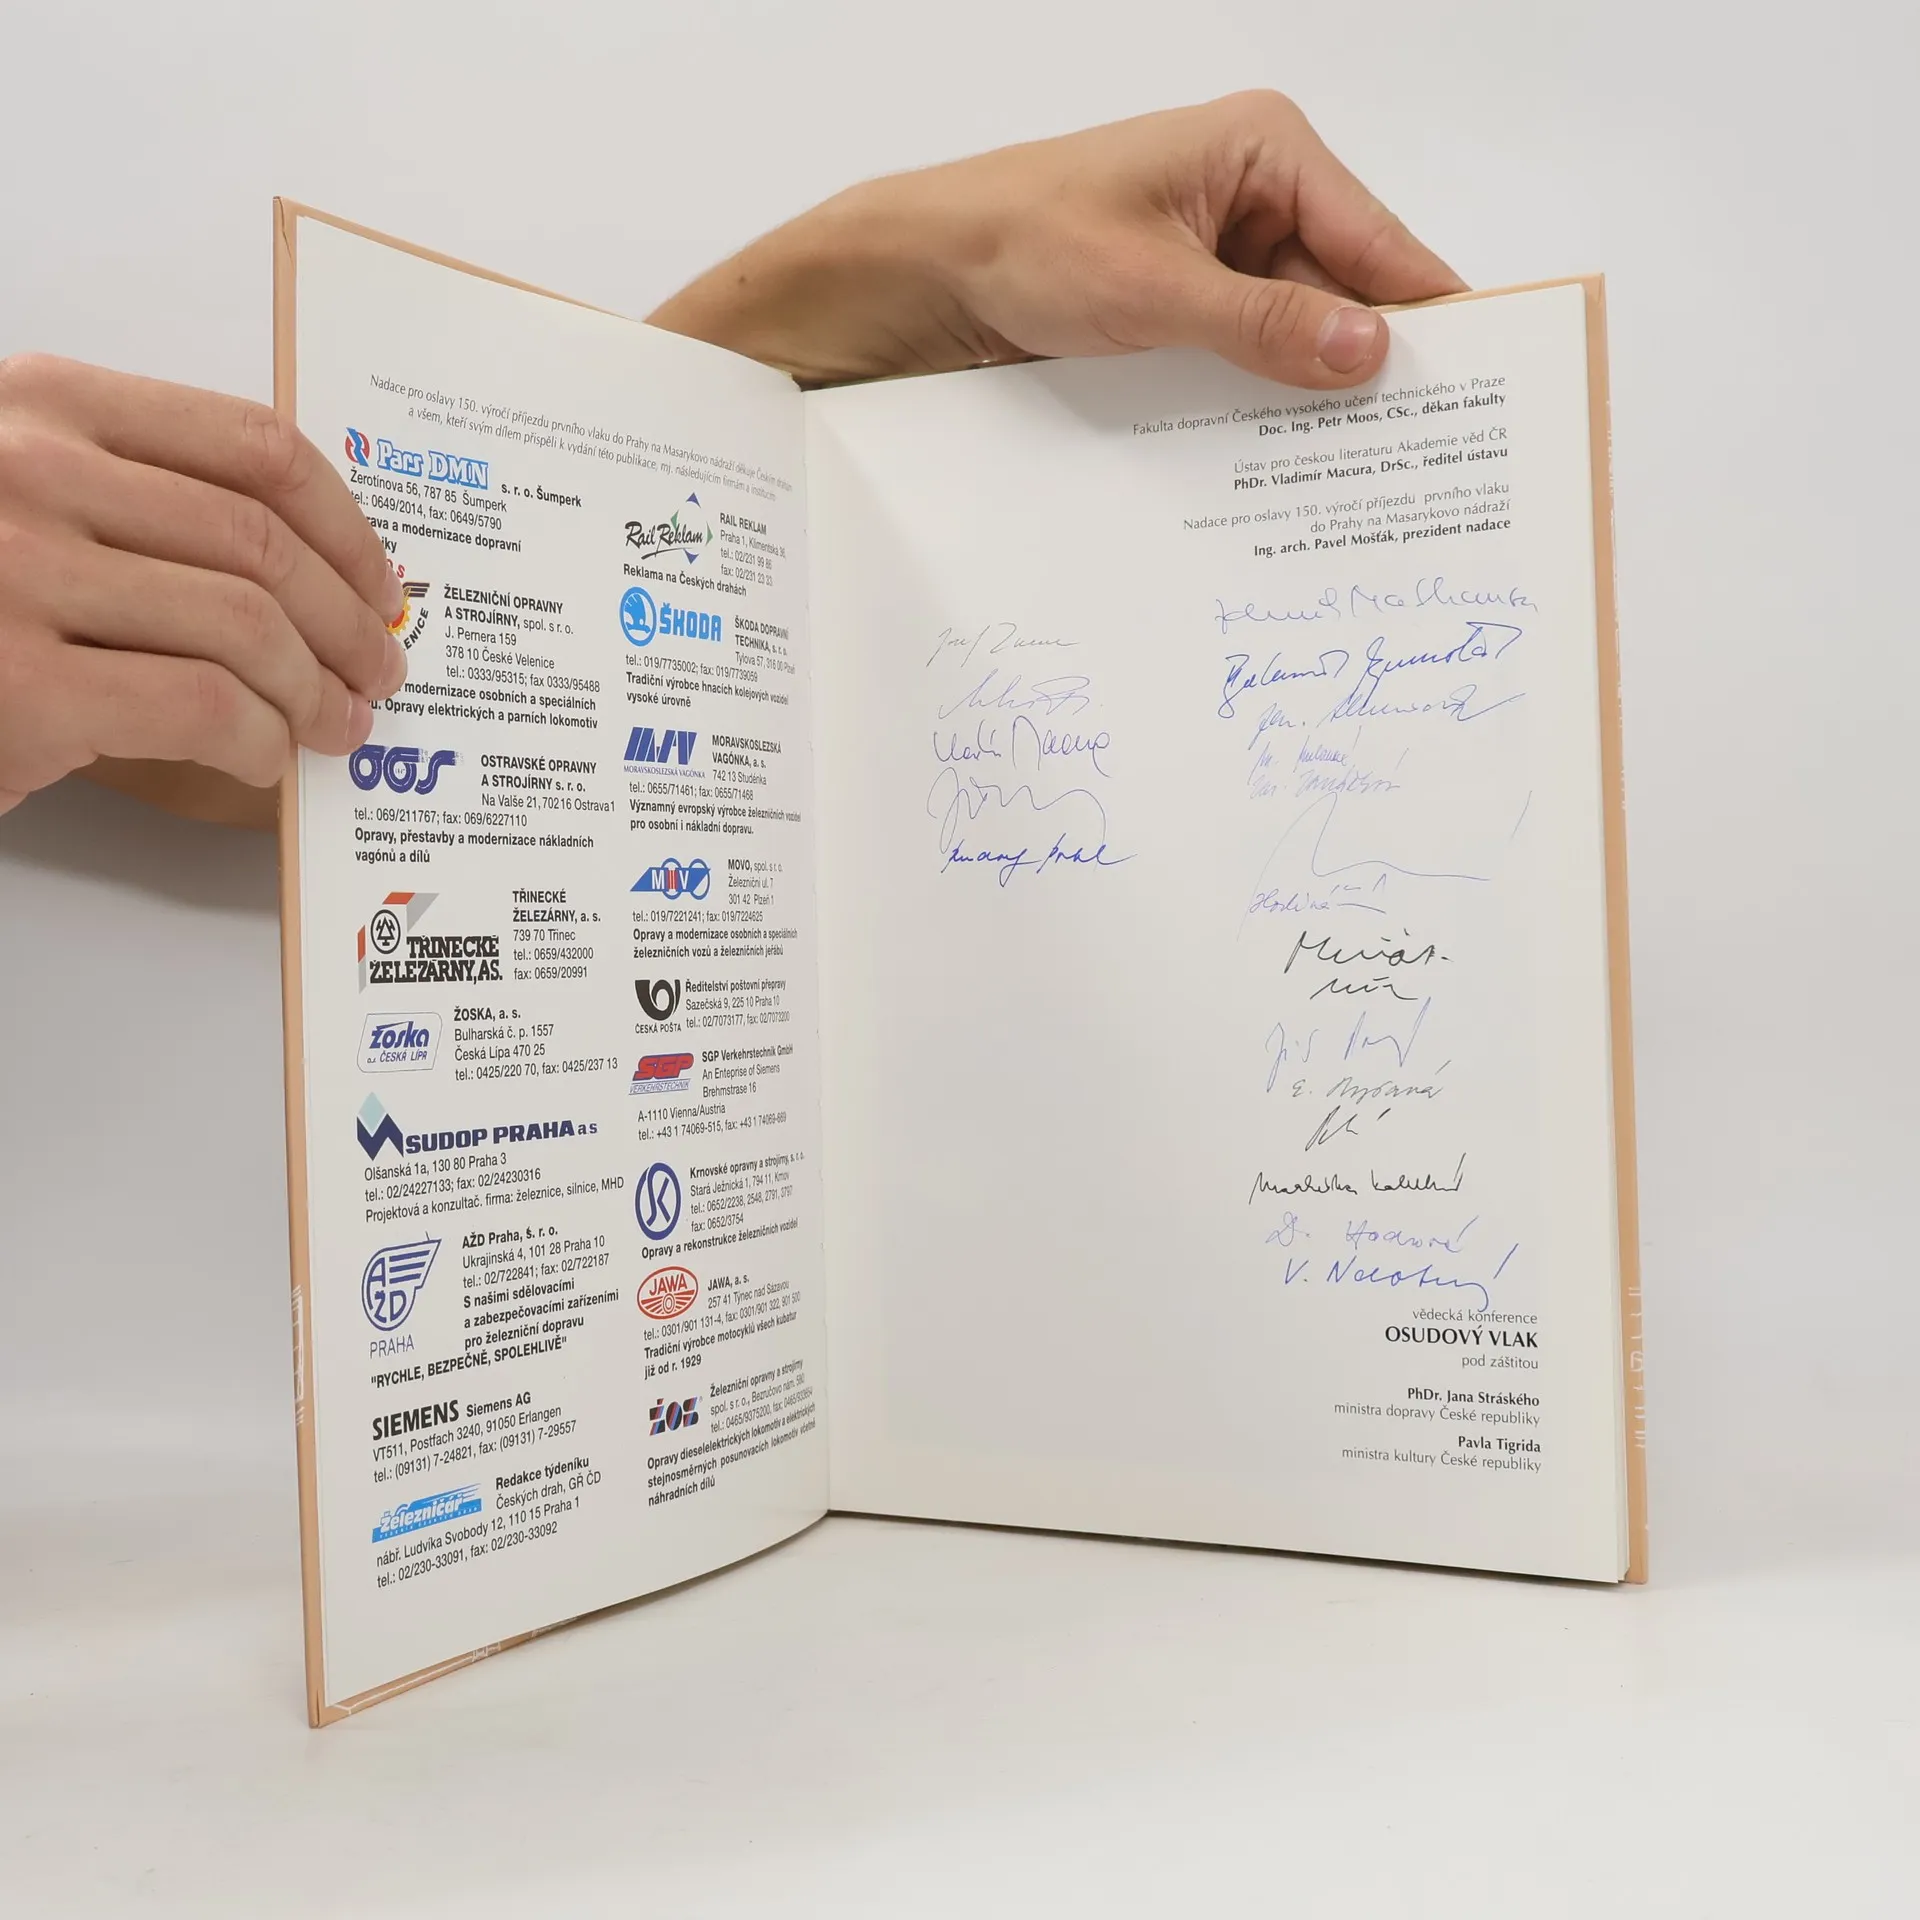 Nadace pro oslavy 150. výročí příjezdu prvního vlaku do Prahy na Masarykovo nádraží děkuje Českým drahám
a všem, kteří svým dílem přispěli k vydání této publikace, mj. následujícím firmám a institucím
Pars DMN s. r. o. Šumperk
Žerotínova 56, 787 85 Šumperk
tel.: 0649/2014, fax: 0649/5790
a modernizace dopravní
ŽELEZNIČNÍ OPRAVNY
A STROJÍRNY, spol. s r. o.
J. Pernera 159
378 10 České Velenice
tel.: 0333/95315; fax 0333/95488
modernizace osobních a speciálních
Opravy elektrických a parních lokomotiv
OOS
OSTRAVSKÉ OPRAVNY
A STROJÍRNY s. r. o.
Na Valše 21, 702 16 Ostrava 1
tel.: 069/211767; fax: 069/6227110
Opravy, přestavby a modernizace nákladních
vagónů a dílů
TŘINECKÉ
ŽELEZÁRNY, A.S.
TŘINECKÉ
ŽELEZÁRNY, a. s.
739 70 Třinec
tel.: 0659/432000
fax: 0659/20991
žoska
a.s. ČESKÁ LÍPA
ŽOSKA, a. s.
Bulharská č. p. 1557
Česká Lípa 470 25
tel.: 0425/220 70, fax: 0425/237 13
SUDOP PRAHA a s
Olšanská 1a, 130 80 Praha 3
tel.: 02/24227133; fax: 02/24230316
Projektová a konzultač. firma: železnice, silnice, MHD
AŽD
PRAHA
AŽD Praha, s. r. o.
Ukrajinská 4, 101 28 Praha 10
tel.: 02/722841; fax: 02/722187
S našimi sdělovacími
a zabezpečovacími zařízeními
pro železniční dopravu
"RYCHLE, BEZPEČNĚ, SPOLEHLIVĚ"
SIEMENS Siemens AG
VT511, Postfach 3240, 91050 Erlangen
tel.: (09131) 7-24821, fax: (09131) 7-29557
Železničář
Redakce týdeníku
Českých drah, GŘ ČD
nábř. Ludvíka Svobody 12, 110 15 Praha 1
tel.: 02/230-33091, fax: 02/230-33092
Rail Reklam
RAIL REKLAM
Praha 1, Klimentská 36
tel.: 02/231 99 86
fax: 02/231 23 33
Reklama na Českých drahách
ŠKODA
ŠKODA DOPRAVNÍ
TECHNIKA, s. r. o.
Tylova 57, 316 00 Plzeň
tel.: 019/7735002; fax: 019/7739059
Tradiční výrobce hnacích kolejových vozidel
vysoké úrovně
MORAVSKOSLEZSKÁ VAGÓNKA
MORAVSKOSLEZSKÁ
VAGÓNKA, a. s.
742 13 Studénka
tel.: 0655/71461; fax: 0655/71468
Významný evropský výrobce železničních vozidel
pro osobní i nákladní dopravu.
MOVO
MOVO, spol. s r. o.
Železniční ul. 7
301 42 Plzeň 1
tel.: 019/7221241; fax: 019/7224625
Opravy a modernizace osobních a speciálních
železničních vozů a železničních jeřábů
ČESKÁ POŠTA
Ředitelství poštovní přepravy
Sazečská 9, 225 10 Praha 10
tel.: 02/7073177, fax: 02/7073200
SGP
VERKEHRSTECHNIK
SGP Verkehrstechnik GmbH
An Enteprise of Siemens
Brehmstrase 16
A-1110 Vienna/Austria
tel.: +43 1 74069-515, fax: +43 1 74069-669
Krnovské opravny a strojírny, s. r. o.
Stará Ježnická 1, 794 11, Krnov
tel.: 0652/2238, 2548, 2791, 3797
fax: 0652/3754
Opravy a rekonstrukce železničních vozidel
JAWA
JAWA, a. s.
257 41 Týnec nad Sázavou
tel.: 0301/901 131-4, fax: 0301/901 322, 901 500
Tradiční výrobce motocyklů všech kubatur
již od r. 1929
žos
Železniční opravny a strojírny
spol. s r. o., Bezručovo nám. 580
tel.: 0465/9375200, fax:
Opravy dieselelektrických lokomotiv a elektrických
stejnosměrných posunovacích lokomotiv včetně
náhradních dílů
Fakulta dopravní Českého vysokého učení technického v Praze
Doc. Ing. Petr Moos, CSc., děkan fakulty
Ústav pro českou literaturu Akademie věd ČR
PhDr. Vladimír Macura, DrSc., ředitel ústavu
Nadace pro oslavy 150. výročí příjezdu prvního vlaku
do Prahy na Masarykovo nádraží
Ing. arch. Pavel Mošťák, prezident nadace
D. Hodrová
V. Novotný
vědecká konference
OSUDOVÝ VLAK
pod záštitou
PhDr. Jana Stráského
ministra dopravy České republiky
Pavla Tigrida
ministra kultury České republiky